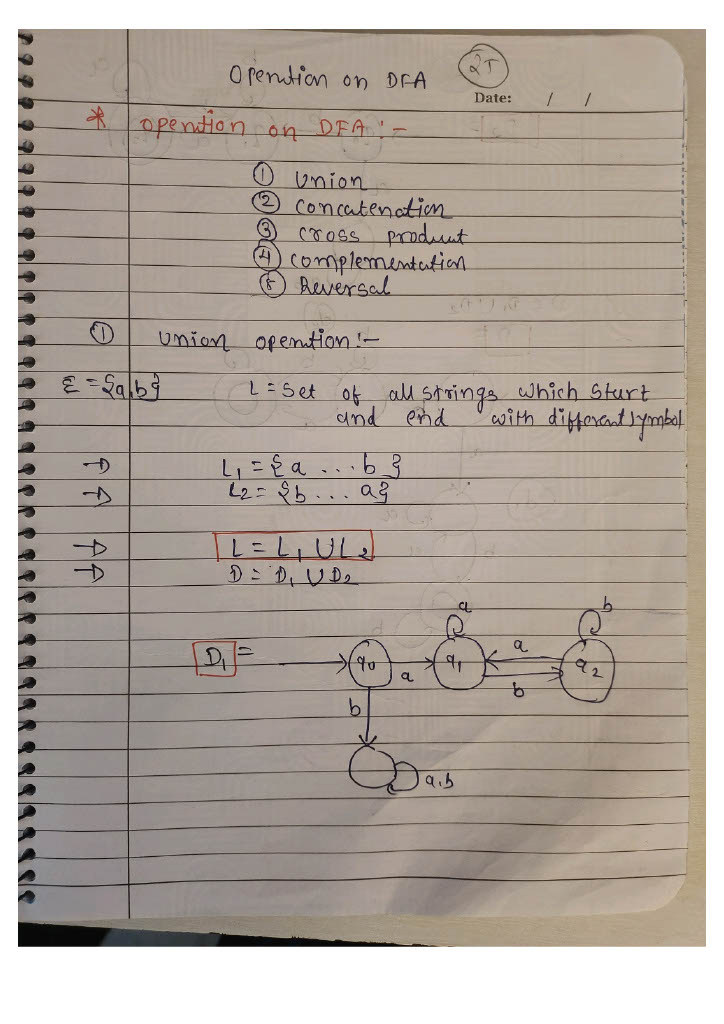 Operation on DFA
2T
Date: / /
* operation on DFA :-
① Union
② Concatenation
③ cross product
④ complementation
⑤ Reversal
① Union operation :-
Σ = {a,b} L = Set of all strings which Start
and end with different symbol
→ L₁ = {a ... b}
→ L₂ = {b ... a}
→ L = L₁ ∪ L₂
→ D = D₁ ∪ D₂
a b
D₁ = q₀ a q₁ a b q₂
b
a,b